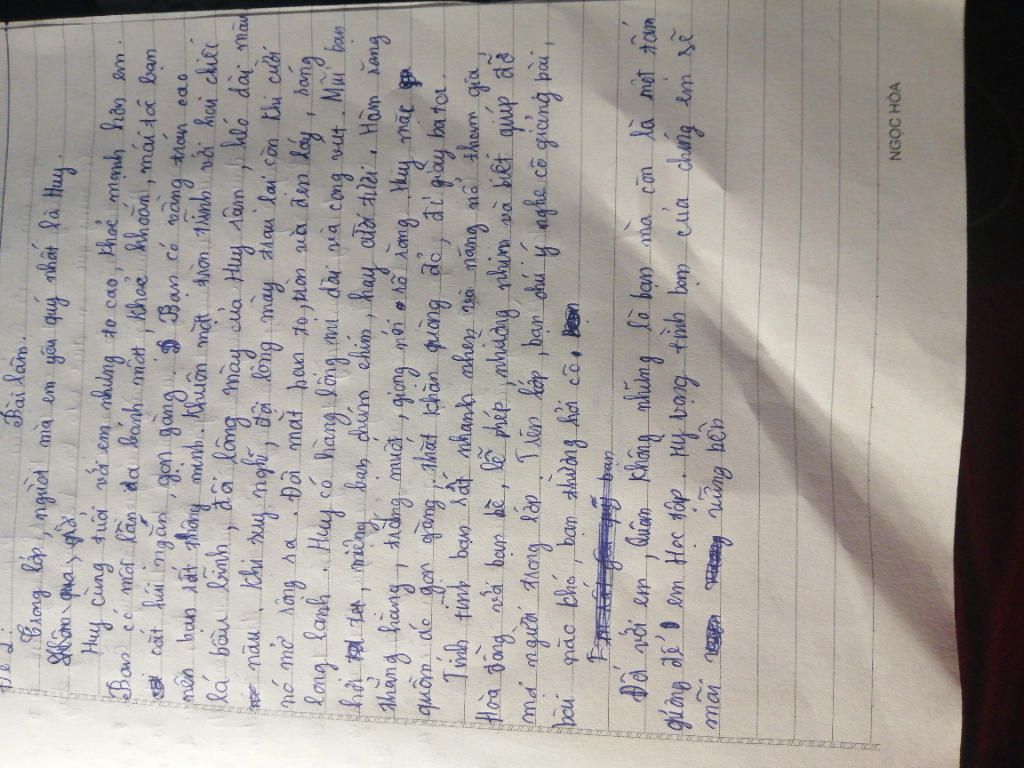 Đề 2: Bài làm.
Trong lớp, người mà em yêu quý nhất là Huy.
Huy cùng tuổi với em nhưng to cao, khoẻ mạnh hơn em.
Bạn có một làn da bánh mật, khoẻ khoắn, mái tóc bạn
cắt hơi ngắn, gọn gàng. Bạn có vầng trán cao
nên bạn rất thông minh. Khuôn mặt tròn trĩnh với hai chiếc
lá bầu bĩnh, đôi lông mày của Huy rậm, kéo dài màu
nâu. Khi suy nghĩ, đôi lông mày trau lại còn khi cười
nó mở rộng ra. Đôi mắt bạn to, tròn và đen láy, sáng
long lanh. Huy có hàng lông mi dài và cong vút. Mũi bạn
hơi tẹt, miệng bạn chúm chím, hay cười tươi. Hàm răng
thẳng hàng, trắng muốt, giọng nói rõ ràng. Huy mặc
quần áo gọn gàng, thắt khăn quàng đỏ, đi giày bata.
Tính tình bạn rất nhanh nhẹn và năng nổ tham gia
Hòa đồng với bạn bè, lễ phép, nhường nhịn và biết giúp đỡ
mọi người trong lớp. Trên lớp, bạn chú ý nghe cô giảng bài,
bài nào khó, bạn thường hỏi cô.
Đối với em, Quân không những là bạn mà còn là một tấm
gương để em Học tập. Hy vọng tình bạn của chúng em sẽ
mãi vững bền
NGỌC HÒA